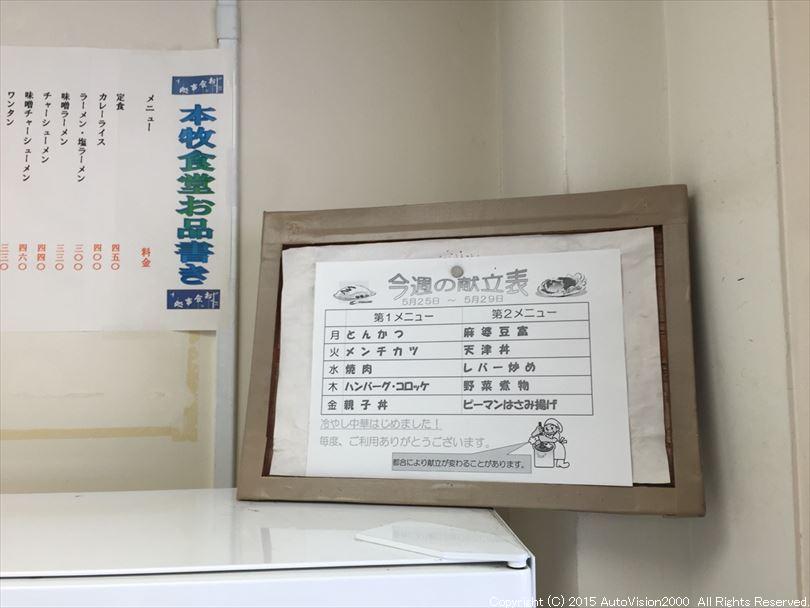 本牧食堂お品書き
メニュー 料金
定食 四五〇
カレーライス 四〇〇
ラーメン・塩ラーメン 三〇〇
味噌ラーメン 三三〇
チャーシューメン 四四〇
味噌チャーシューメン 四六〇
ワンタン 三三〇
今週の献立表
5月25日 ～ 5月29日
第1メニュー 第2メニュー
月 とんかつ 麻婆豆富
火 メンチカツ 天津丼
水 焼肉 レバー炒め
木 ハンバーグ・コロッケ 野菜煮物
金 親子丼 ピーマンはさみ揚げ
冷やし中華はじめました！
毎度、ご利用ありがとうございます。
都合により献立が変わることがあります。
Copyright (C) 2015 AutoVision2000 All Rights Reserved